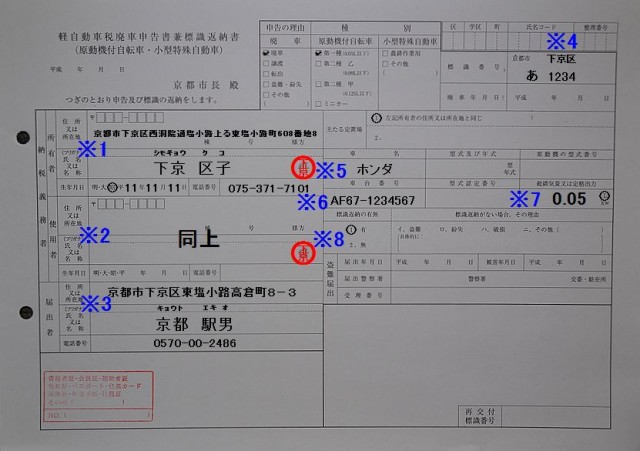 軽自動車税廃車申告書兼標識返納書
(原動機付自転車・小型特殊自動車)
平成 年 月 日
京都市長 殿
つぎのとおり申告及び標識の返納をします。
申告の理由
種 別
廃車
原動機付自転車
小型特殊自動車
廃車
譲渡
転出
盗難・紛失
その他
第一種
第二種 乙
第二種 甲
ミニカー
農耕作業用
その他
区 学区 町 氏名コード 整理番号
※4
標識番号
京都市 下京区
あ 1234
廃車年月日 平成 年 月 日
主たる定置場
① 左記所有者の住所(所在地)と同じ
2.
納税義務者
所有者
住所又は所在地
京都市下京区西洞院通塩小路上る東塩小路町608番地8
※1
(フリガナ)
氏名又は名称
シモギョウ ク コ
下京 区子
※5
生年月日 明・大・昭・平 11年11月11日
電話番号 075-371-7101
使用者
住所又は所在地
※2
番 号 様方
(フリガナ)
氏名又は名称
同上
※8
生年月日 明・大・昭・平 年 月 日
電話番号
届出者
住所又は所在地
京都市下京区東塩小路高倉町8-3
※3
(フリガナ)
氏名又は名称
キョウト エキオ
京都 駅男
電話番号 0570-00-2486
車名
ホンダ
型式及び年式
型 年式
原動機の型式番号
車台番号
※6
AF67-1234567
型式認定番号
総排気量又は定格出力
※7
0.05
標識返納の有無
① 有
2. 無
標識返納がない場合、その理由
イ. 盗難 ロ. 紛失 ハ. 破損 ニ. その他( )
盗難届出
届出年月日 平成 年 月 日
被害年月日 平成 年 月 日
届出警察署 警察署 交番・駐在所
受理番号
再交付標識番号